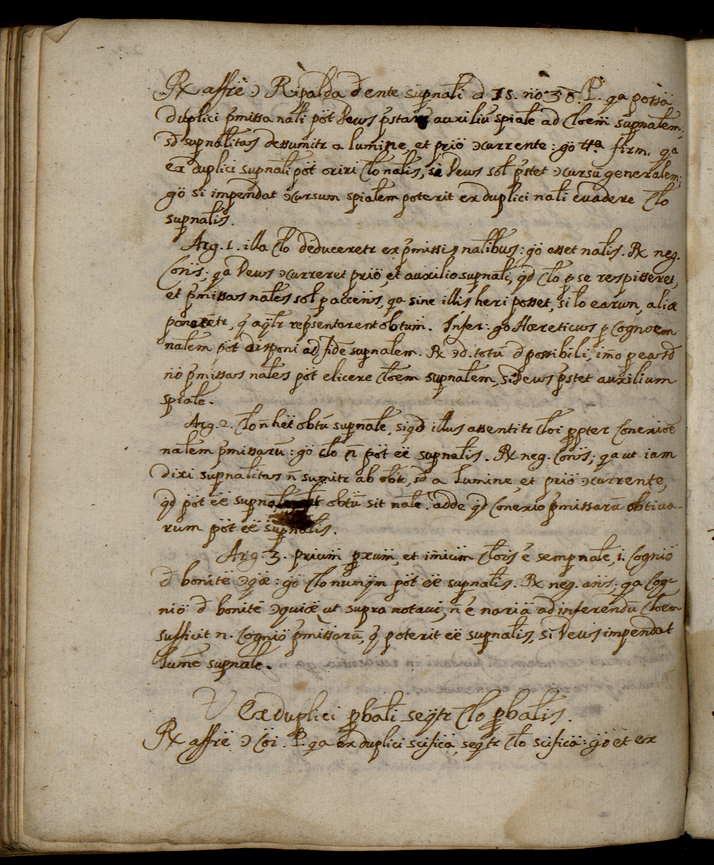 Rx affir̄e ɔ Ripalda d ente supnāli d. 15. no 30. P. qa positā
duplici p̄missa nāli pōt Deus p̄stare auxiliū spiāle ad C̄loem̄ supnālem,
sd supnālitas dessumitr a lumine, et prīo ɔcurrente: gō
ex duplici supnāli pōt oriri C̄lo nālis, si Deus sōl p̄stet ɔcursū generālem;
gō si impendat ɔcursum spiālem poterit ex duplici nāli evadere C̄lo
supnālis.
Arg. 1. illa C̄lo deduceretr ex p̄missis nālibus: gō esset nālis. Rx neg.
C̄oniz; qa Deus ɔcurreret prīo, et auxilio supnāli, qd C̄lo p se respisseret,
et p̄missas nāles sōl p accens, qa sine illis heri posset, si lo earun, aliæ
ponerētr, q̄ aq̄lr rep̄sentarent obtum̄. Infer: gō Hæreticus p Cognoem̄
nālem pōt disponi ad fidē supnālem. Rx ɔd. totū d possibili, imo peasd
nō p̄missas nāles pōt elicere C̄loem supnālem, si Deus p̄stet auxilium
spiāle.
Arg. 2. C̄lo n̄ het obtū supnāle, siqd illus assentitr C̄loi p̄pter Conexioē
nālem p̄missarū: gō C̄lo n̄ pōt eē supnālis. Rx neg. C̄oniz; qa ut iam
dixi supnālitas n̄ sumitr ab obto, sd a lumine, et prīo ɔcurrente,
qd pōt eē obtū sit nāle. adde qd Conexio p̄missarū obtiva-
rum pōt eē supnālis.
Arg. 3. prium̄ p̄xum̄, et imium̄ C̄loīs ē semp nāle, i. Cognīo
d bonitē ɔqæ: gō C̄lo nunqm pōt eē supnālis. Rx neg. ans; qa Cog-
nīo d bonitē ɔquiæ ut supra notavi, n̄ ē naria ad inferendū C̄loem
sufficit n. Cognīo p̄missarū, q̄ poterit eē supnālis, si Deus impendat
lumē supnāle.
V Ex duplici p̄bāli seqtr C̄lo p̄bālis.
Rx affir̄e ɔ C̄oi. P. qa ex duplici scificā seqtr C̄lo scificā: gō et ex